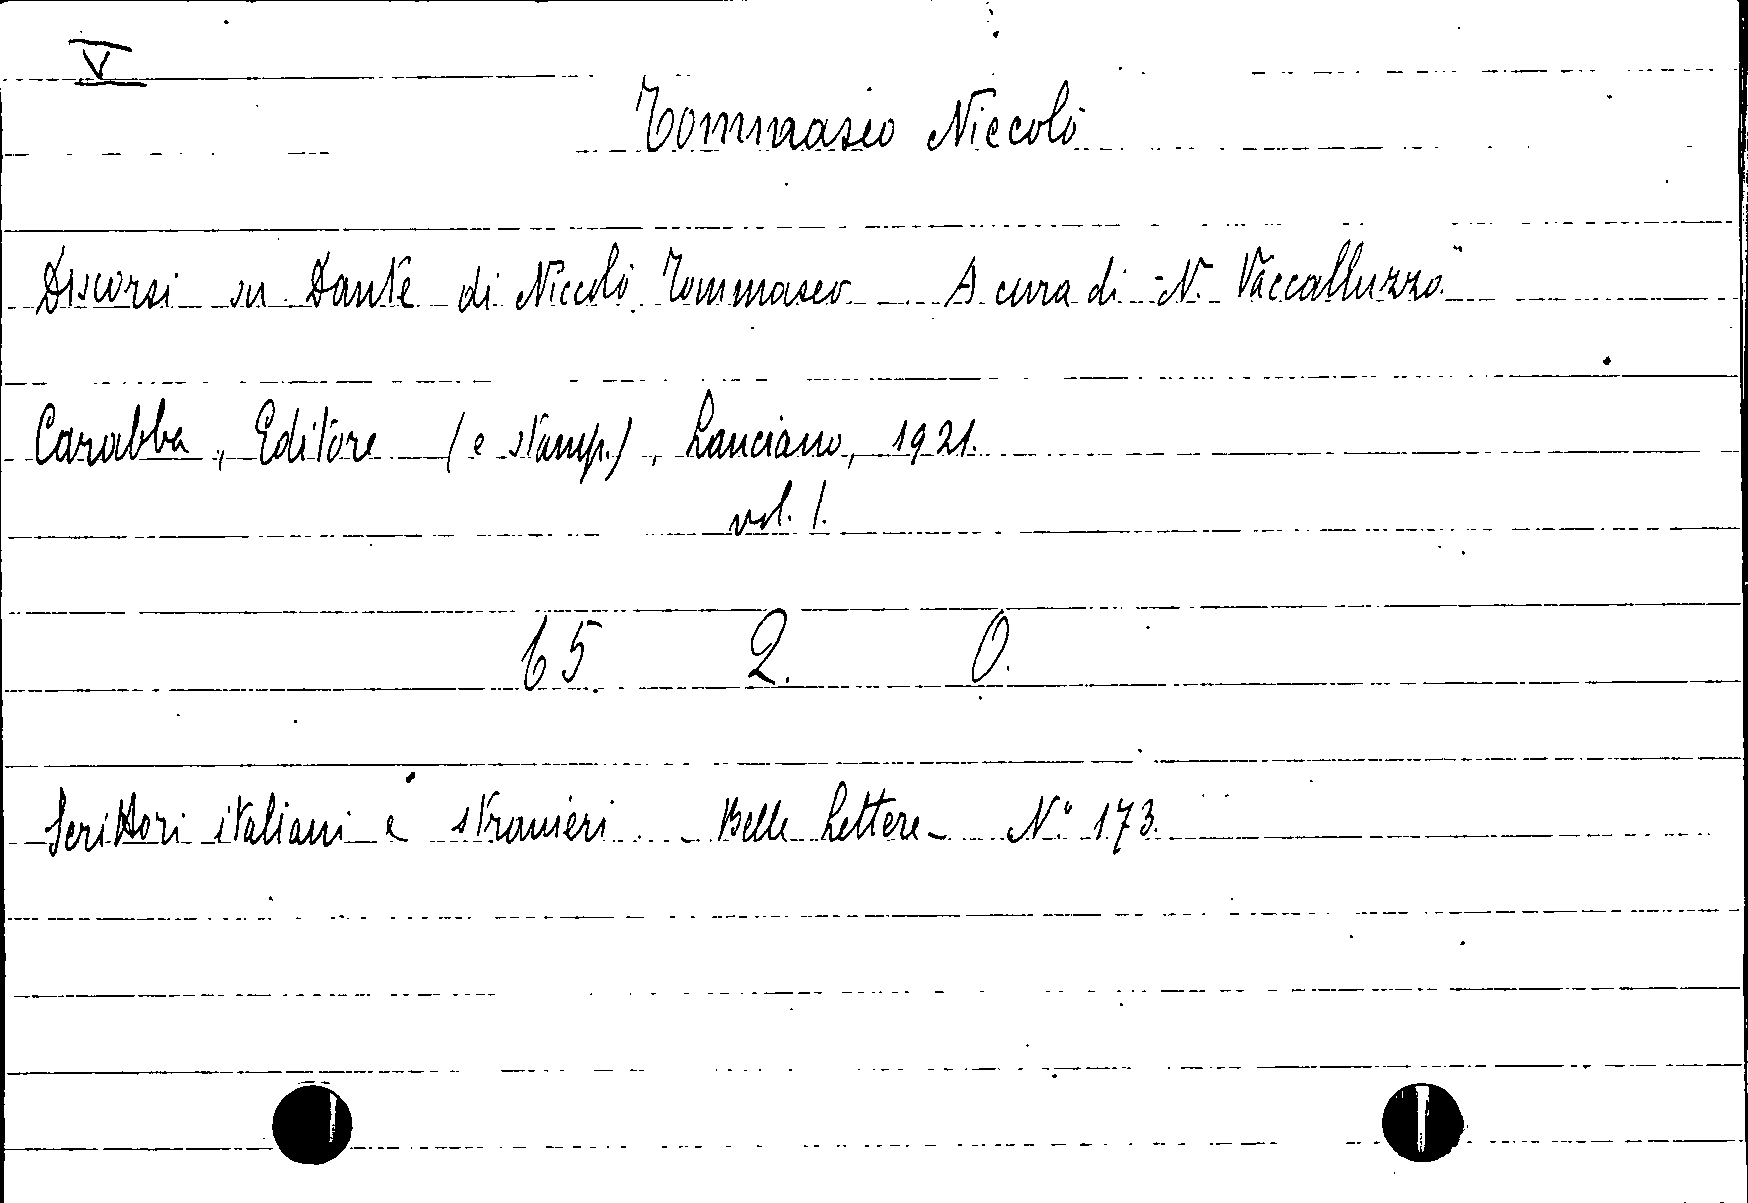 V
Tommaseo Niccolò
Discorsi su Dante di Niccolò Tommaseo A cura di N. Vaccalluzzo.
Carabba, Editore (e stamp.), Lanciano, 1921.
vol. 1.
65. 2. 0.
Scrittori italiani e stranieri. - Belle Lettere - N.° 173.